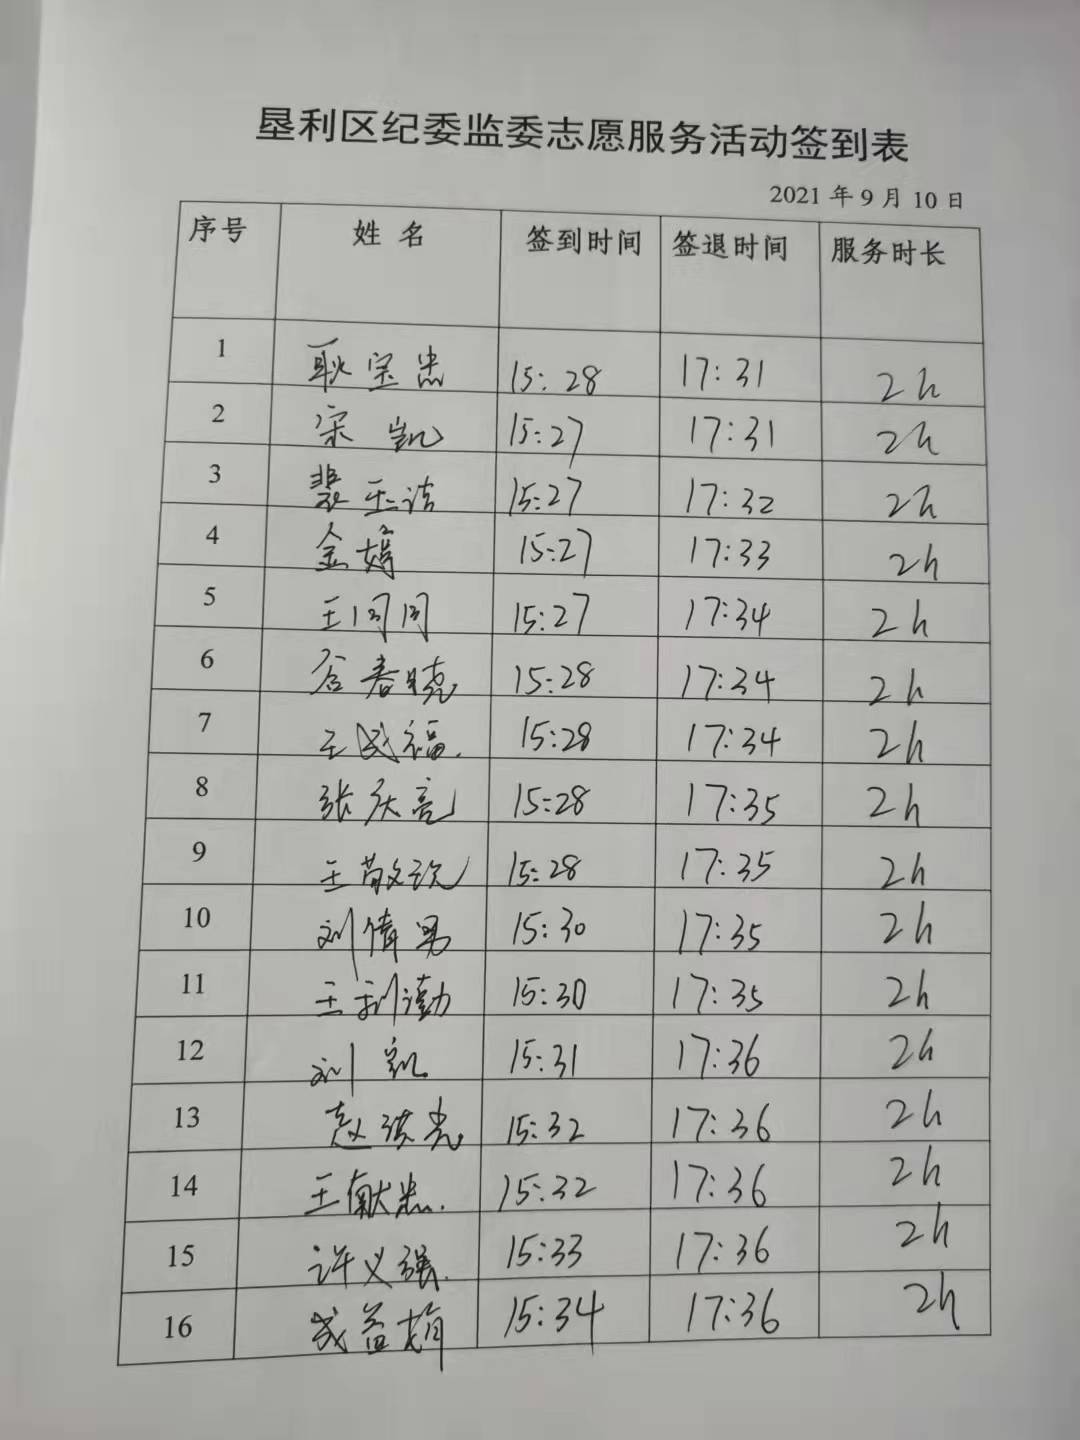 垦利区纪委监委志愿服务活动签到表
2021 年 9 月 10 日
序号 姓 名 签到时间 签退时间 服务时长
1 耿宝忠 15:28 17:31 2h
2 宋凯 15:27 17:31 2h
3 裴玉洁 15:27 17:32 2h
4 金婷 15:27 17:33 2h
5 王同同 15:27 17:34 2h
6 谷春晓 15:28 17:34 2h
7 王成福. 15:28 17:34 2h
8 张庆亮 15:28 17:35 2h
9 王敬 15:28 17:35 2h
10 刘倩男 15:30 17:35 2h
11 王利勤 15:30 17:35 2h
12 刘凯 15:31 17:36 2h
13 赵洪光 15:32 17:36 2h
14 王献忠. 15:32 17:36 2h
15 许义强. 15:33 17:36 2h
16 成益娟 15:34 17:36 2h